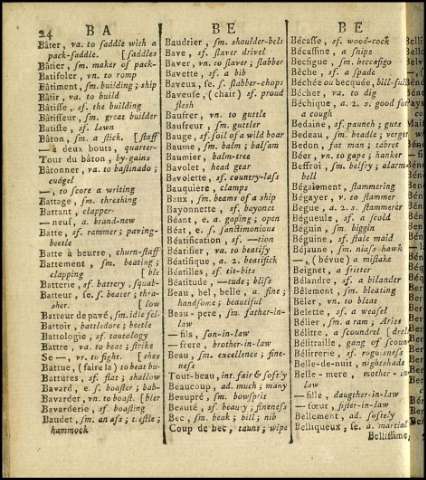 24 B A B E B E
Bâter, va. to saddle with a
pack-saddle. [saddles
Bâtier, sm. maker of pack-
Batifoler, vn. to romp
Bâtiment, sm. building; ship
Bâtir, va. to build
Bâtisse, sf. the building
Bâtisseur, sm. great builder
Batiste, sf. lawn
Bâton, sm. a stick, [staff
— à deux bouts, quarter-
Tour du bâton, by-gains
Bâtonner, va. to bastinado;
cudgel
—, to score a writing
Battage, sm. threshing
Battant, clapper
— neuf, a. brand-new
Batte, sf. rammer; paving-
beetle
Batte à beurre, churn-staff
Battement, sm. beating;
clapping [ble
Batterie, sf. battery; squab-
Batteur, se, f. beater; thra-
sher. [low
Batteur de pavé, sm. idle fel-
Battoir, battledore; beetle
Battologie, sf. tautology
Battre, va. to beat; strike
Se —, vr. to fight.
Battue, (faire la) to beat bu-
Battures, sf. flat; shallow
Bavard, e, s. boaster; bab-
Bavarder, vn. to boast; bler
Bavarderie, sf. boasting
Baudet, sm. an ass; trestle;
hammock
Baudrier, sm. shoulder-belt
Bave, sf. slaver drivel
Baver, vn. to slaver; slabber
Bavette, sf. a bib
Baveux, se, s. slabber-chops
Baveuse, (chair) sf. proud
flesh
Baufrer, vn. to guttle
Baufreur, sm. guttler
Bauge, sf. soil of a wild boar
Baume, sm. balm; balsam
Baumier, balm-tree
Bavolet, head gear
Bavolette, sf. country-lass
Bauquière, clamps
Baux, sm. beams of a ship
Bayonnette, sf. bayonet
Béant, e, a. gaping; open
Béat, e, s. sanctimonious
Béatification, sf. —tion
Béatifier, va. to beatify
Béatifique, a. 2. beatifick
Béatilles, sf. tit-bits
Béatitude, —tude; bliss
Beau, bel, belle, a. fine;
handsome; beautiful
Beau-pere, sm. father-in-
law
— fils, son-in-law
— frere, brother-in-law
Beau, sm. excellence; fine-
ness
Tout-beau, int. fair & softly
Beaucoup, ad. much; many
Beaupré, sm. bowsprit
Beauté, sf. beauty; fineness
Bec, sm. beak; bill; nib
Coup de bec, taunt; wipe
Bécasse, sf. wood-cock
Bécassine, a snipe
Becfigue, sm. beccafigo
Bêche, sf. a spade
Béchée ou becquée, bill-full
Bêcher, va. to dig
Béchique, a. 2. s. good for
a cough
Bedaine, sf. paunch; guts
Bedeau, sm. beadle; verger
Bedon, fat man; tabret
Béer, vn. to gape; hanker
Beffroi, sm. belfry; alarm-
bell
Bégaiement, stammering
Bégayer, v. to stammer
Begue, a. 2. s. stammerer
Bégueule, sf. a scold
Beguin, sm. biggin
Béguine, sf. stale maid
Béjaune, sm. niass-hawk
—, (bévue) a mistake
Beignet, a fritter
Bélandre, sf. a bilander
Bêlement, sm. bleating
Bêler, vn. to bleat
Belette, sf. a weasel
Bélier, sm. a ram; Aries
Bélitre, a scoundrel
Bélitraille, gang of
Bélitrerie, sf. roguiness
Belle-de-nuit, nightshade
Belle-mere, mother-in-
law
— fille, daugther-in-law
— sœur, sister-in-law
Bellement, ad. softely
Belliqueux, se, a. martial
Bellissime,